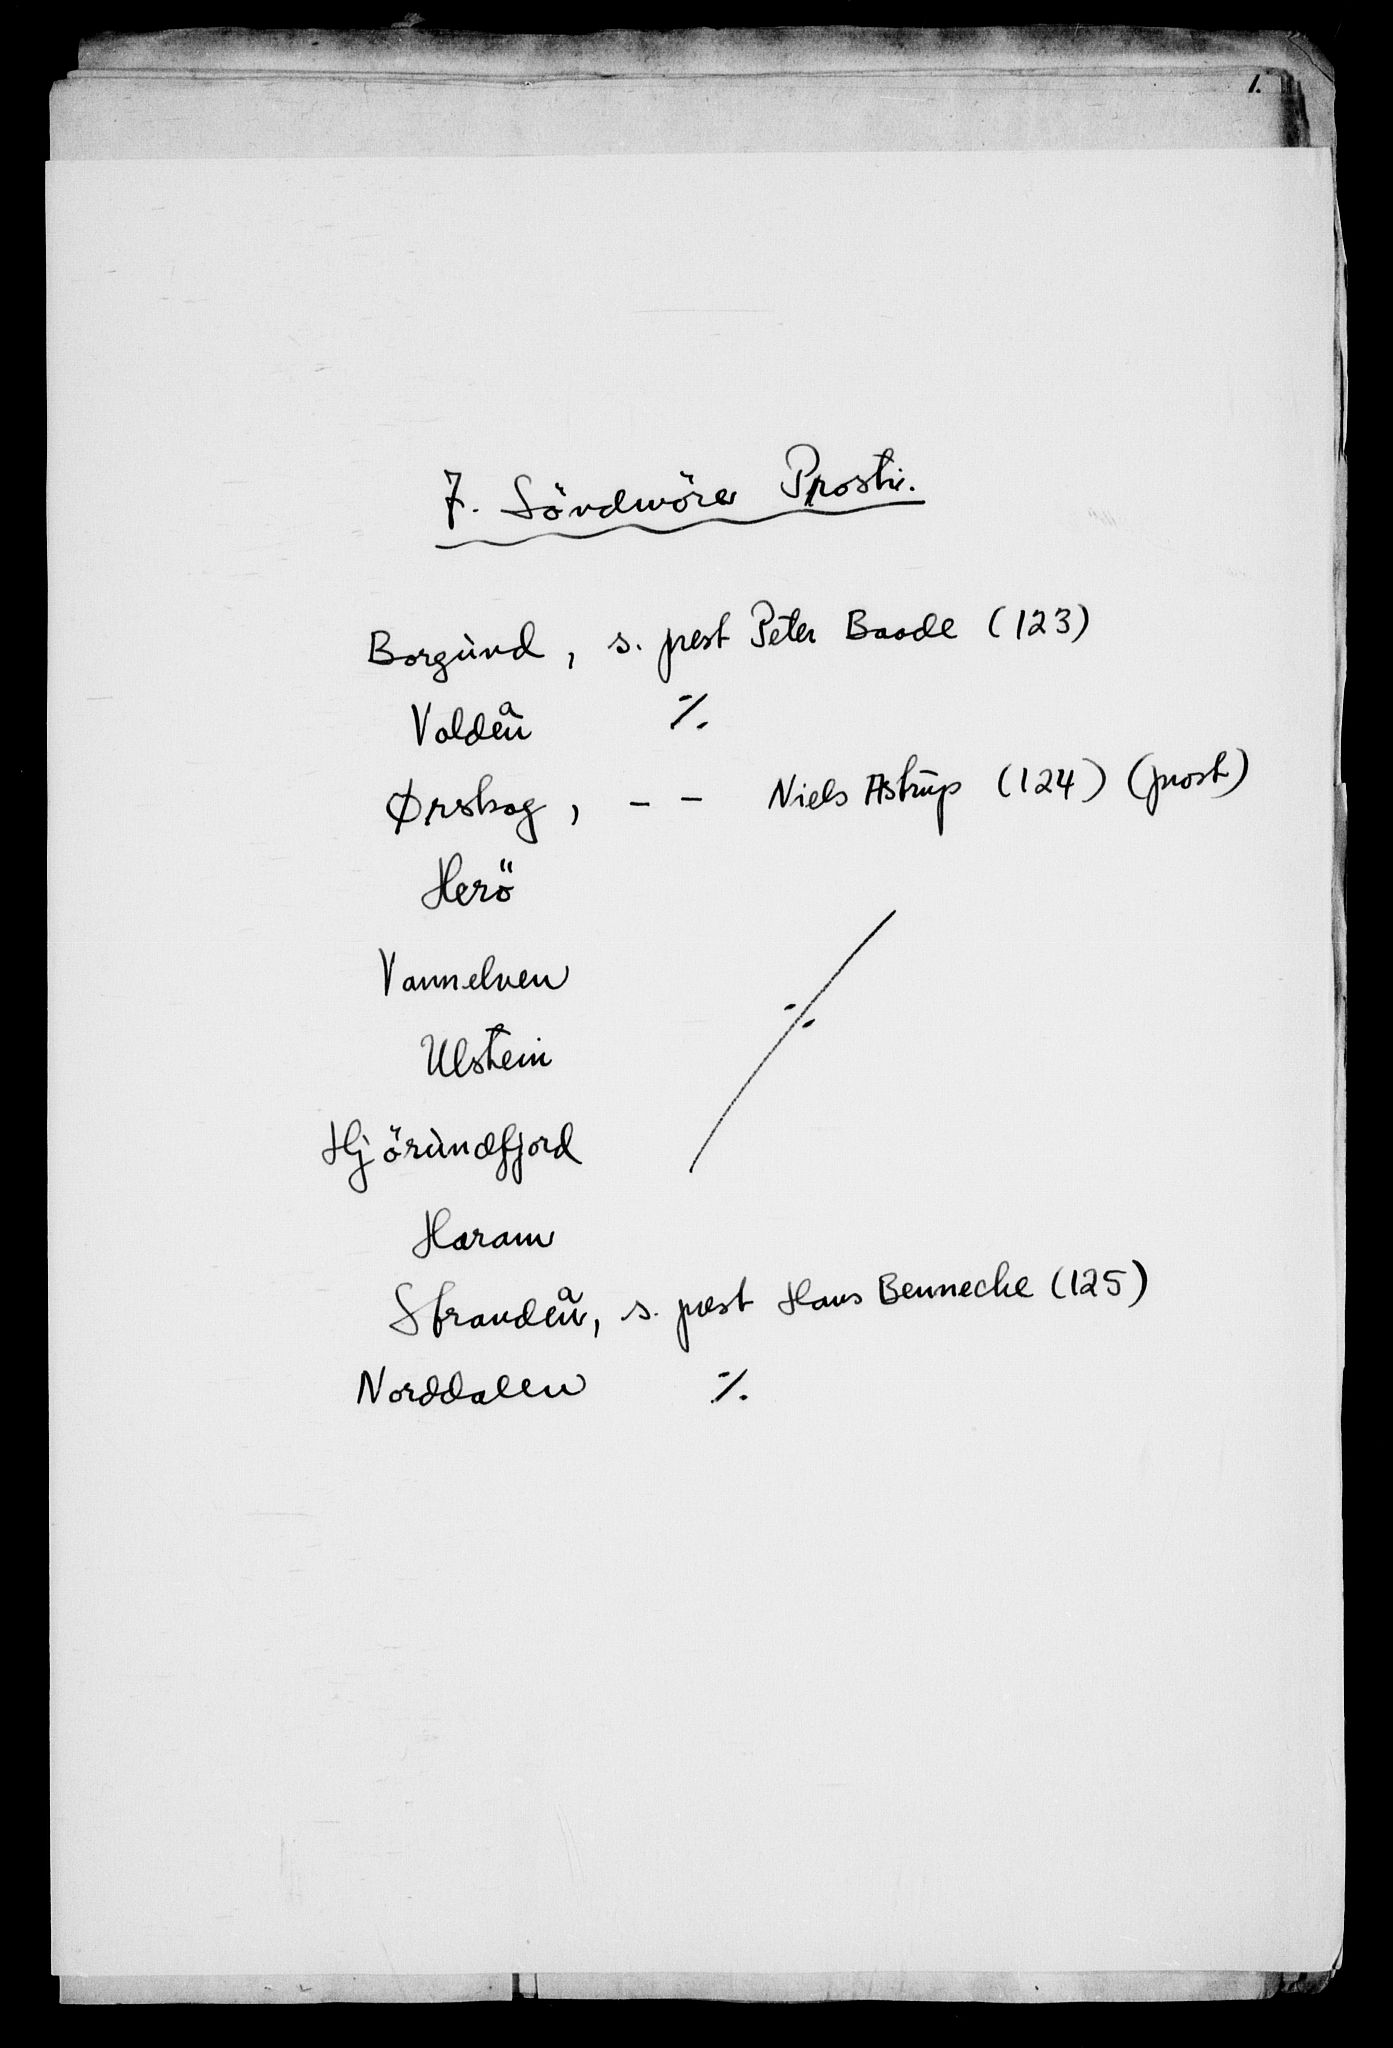 1.
7. Söndmöre Prosti.
Borgund, s. prest Peter Baade (123)
Volden ./.
Ørskog, - - Niels Astrup (124) (prost)
Herö
Vannelven
Ulstein ./.
Hjörundfjord
Haram
Stranden, s. prest Hans Bennecke (125)
Norddalen ./.